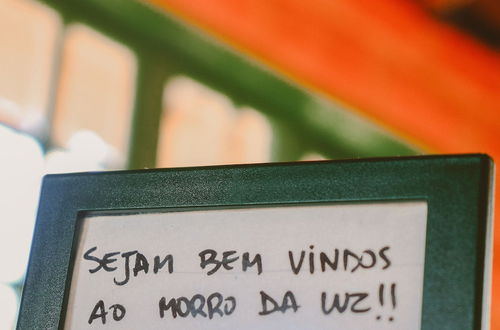 SEJAM BEM VINDOS
AO MORRO DA LUZ!!